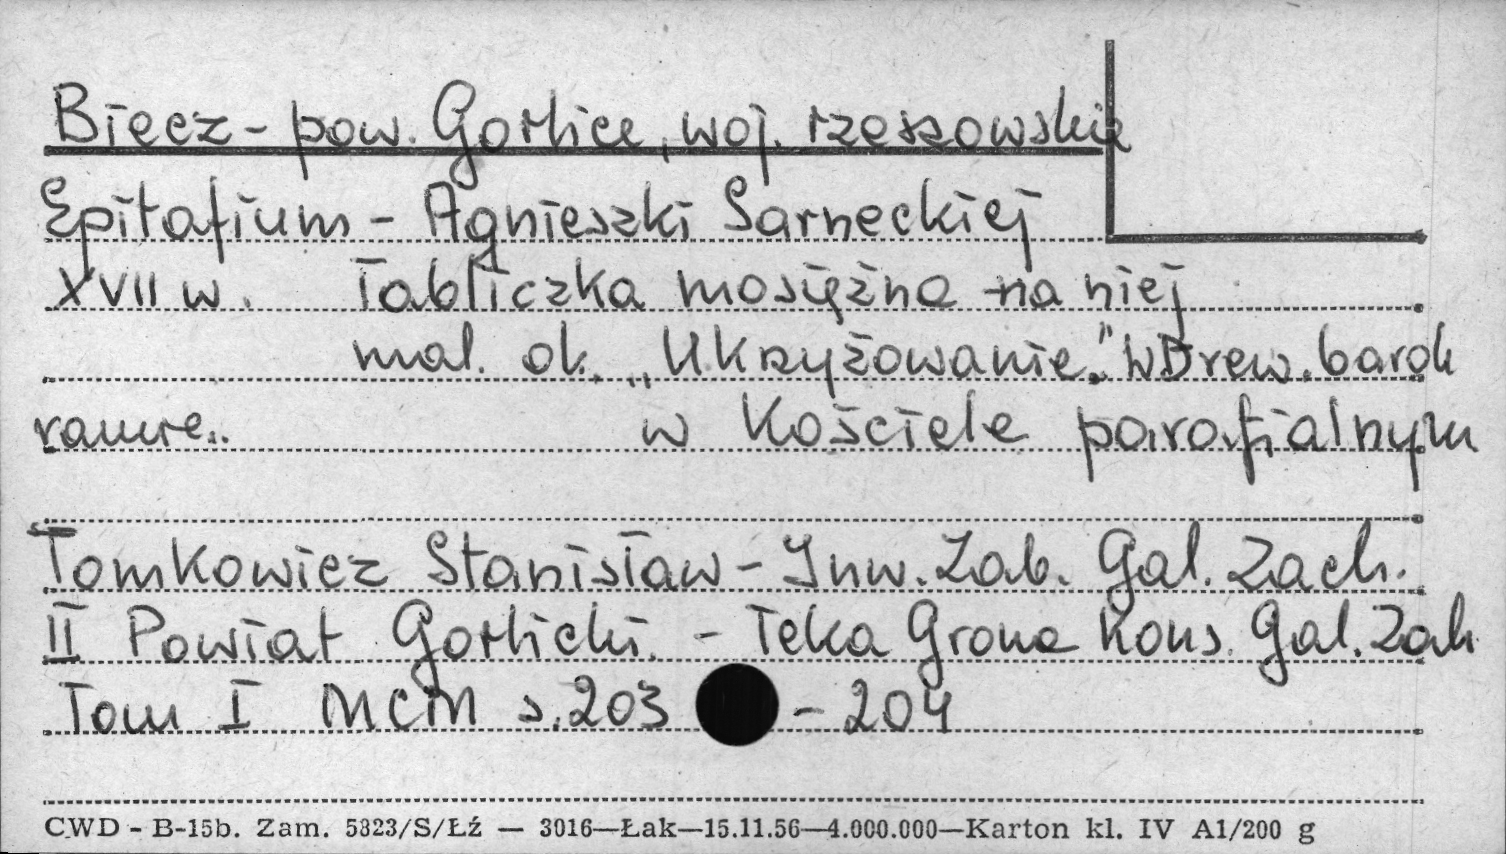 Biecz - pow. Gorlice, woj. rzeszowskie
Epitafium - Agnieszki Sarneckiej
XVII w. Tabliczka mosiężna na niej
mal. ok. „Ukrzyżowanie." W Drew. barok
ramie.. w Kościele parafialnym
Tomkowicz Stanisław - Inw. Zab. Gal. Zach.
II Powiat Gorlicki. - Teka Grona Kons. Gal. Zach
Tom I MCM s. 203 - 204
CWD - B-15b. Zam. 5823/S/Łź — 3016—Łak—15.11.56—4.000.000—Karton kl. IV A1/200 g